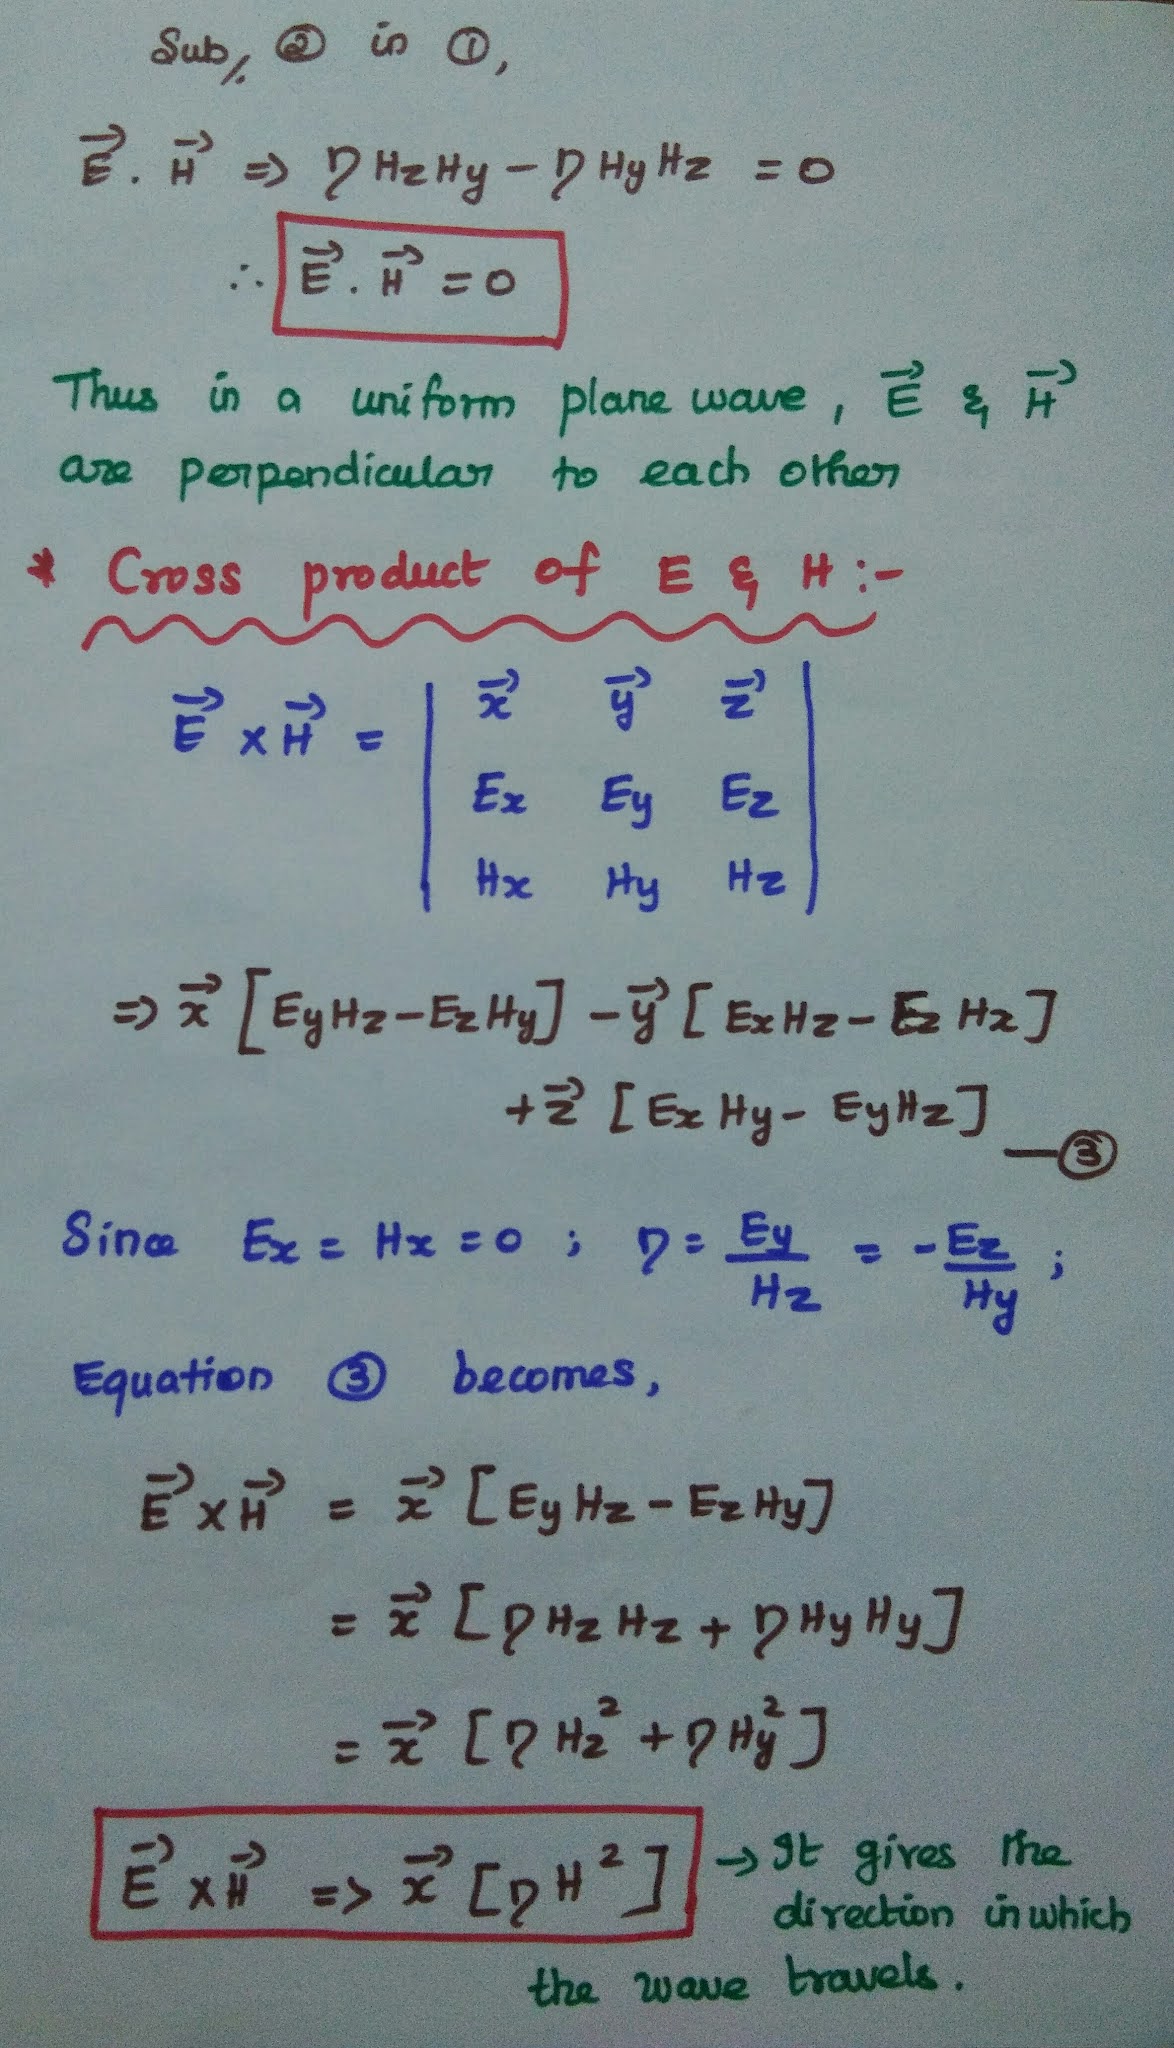 Sub/, ② in ①,
E⃗ . H⃗ => η Hz Hy - η Hy Hz = 0
∴ E⃗ . H⃗ = 0
Thus in a uniform plane wave, E⃗ & H⃗
are perpendicular to each other
* Cross product of E & H :-
x⃗ y⃗ z⃗
E⃗ x H⃗ =
Ex Ey Ez
Hx Hy Hz
=> x⃗ [EyHz - EzHy] - y⃗ [ExHz - Ez Hx]
+ z⃗ [Ex Hy - EyHz] — ③
Since Ex = Hx = 0 ; η = Ey/Hz = - Ez/Hy ;
Equation ③ becomes,
E⃗ x H⃗ = x⃗ [Ey Hz - Ez Hy]
= x⃗ [η Hz Hz + η Hy Hy]
= x⃗ [η Hz² + η Hy²]
E⃗ x H⃗ => x⃗ [η H²] → It gives the
direction in which
the wave travels.